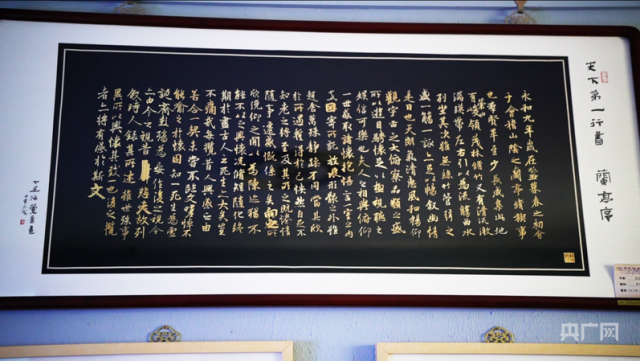 天下第一行書 蘭亭序
永和九年歲在癸丑暮春之初會
于會稽山陰之蘭亭脩稧事
也群賢畢至少長咸集此地
有崇山峻領茂林脩竹又有清流激
湍映帶左右引以為流觴曲水
列坐其次雖無絲竹管弦之
盛一觴一詠亦足以暢敘幽情
是日也天朗氣清惠風和暢仰
觀宇宙之大俯察品類之盛
所以遊目騁懷足以極視聽之
娛信可樂也夫人之相與俯仰
一世或取諸懷抱悟言一室之內
或因寄所託放浪形骸之外雖
趣舍萬殊靜躁不同當其欣
於所遇蹔得於己怏然自足不
知老之將至及其所之既惓情
隨事遷感慨係之矣向之所
欣俛仰之間以為陳迹猶不
能不以之興懷況脩短隨化終
期於盡古人云死生亦大矣豈
不痛哉每攬昔人興感之由
若合一契未嘗不臨文嗟悼不
能喻之於懷固知一死生為虛
誕齊彭殤為妄作後之視今
亦由今之視昔故列
敘時人錄其所述雖世殊事
異所以興懷其致一也後之攬
者亦將有感於斯文
央广网